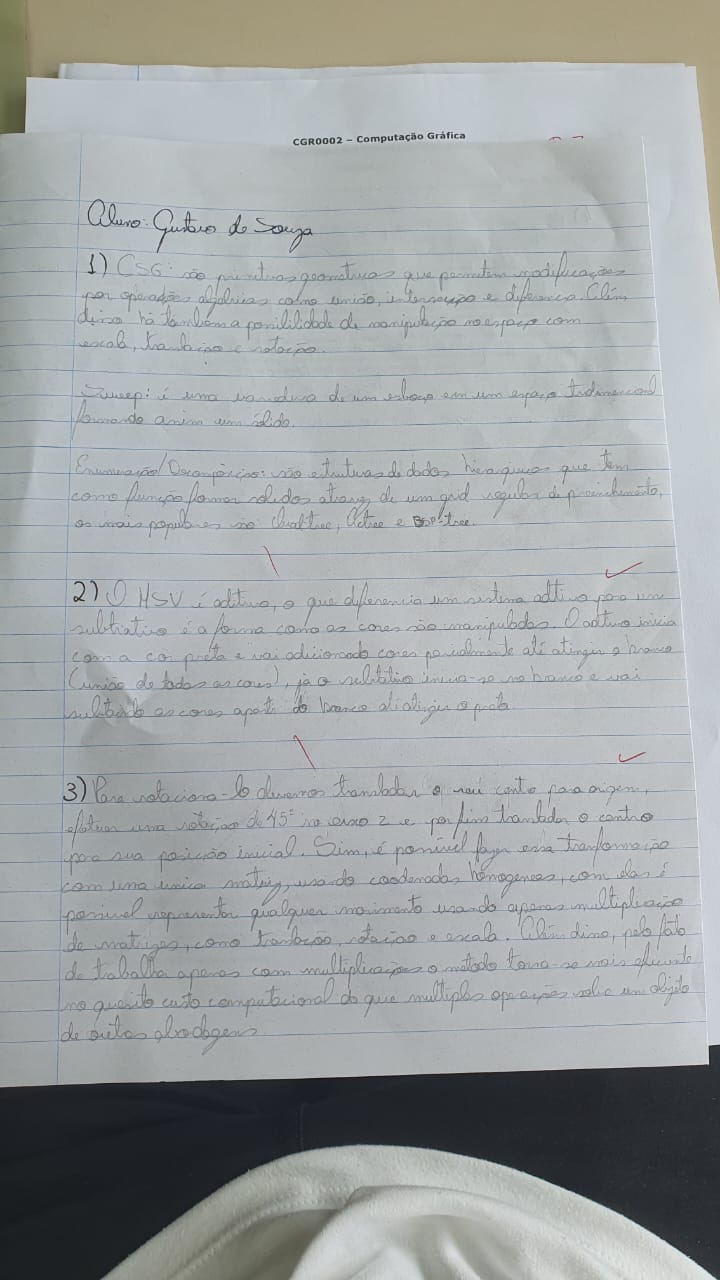 CGR0002 – Computação Gráfica
Aluno: Gustavo de Souza
1) CSG: são primitivas geometricas que permitem modificações
por operações algébricas como união, intersecção e diferença. Além
disso há também a possibilidade de manipulação no espaço com
escala, translação e rotação.
Sweep: é uma varredura de um esboço em um espaço tridimensional
formando assim um sólido.
Enumeração/Decomposição: são estruturas de dados hierarquicas que tem
como função formar solidos atravez de um grid regular de preenchimento,
os mais populares são Quadtree, Octree e BSP-tree.
2) O HSV é aditivo, o que diferencia um sistema aditivo para um
subtrativo é a forma como as cores são manipuladas. O aditivo inicia
com a cor preta e vai adicionado cores parcialmente até atingir o branco
(união de todas as cores), já o inicia-se no branco e vai
as cores apartir do branco até atingir o preto
3) Para rotaciona-lo devemos transladar o seu centro para origem,
efetuar uma rotação de 45° no eixo z e por fim transladar o centro
para sua posição inicial. Sim, é possível fazer essa transformação
com uma unica matriz, usando coordenadas homogeneas, com elas é
possivel representar qualquer movimento usando apenas multiplicação
de matrizes, como translação, rotação e escala. Além disso, pelo fato
de trabalha apenas com multiplicações o método torna-se mais eficiente
no quesito custo computacional do que multiplas operações sobre um objeto
de outras abordagens